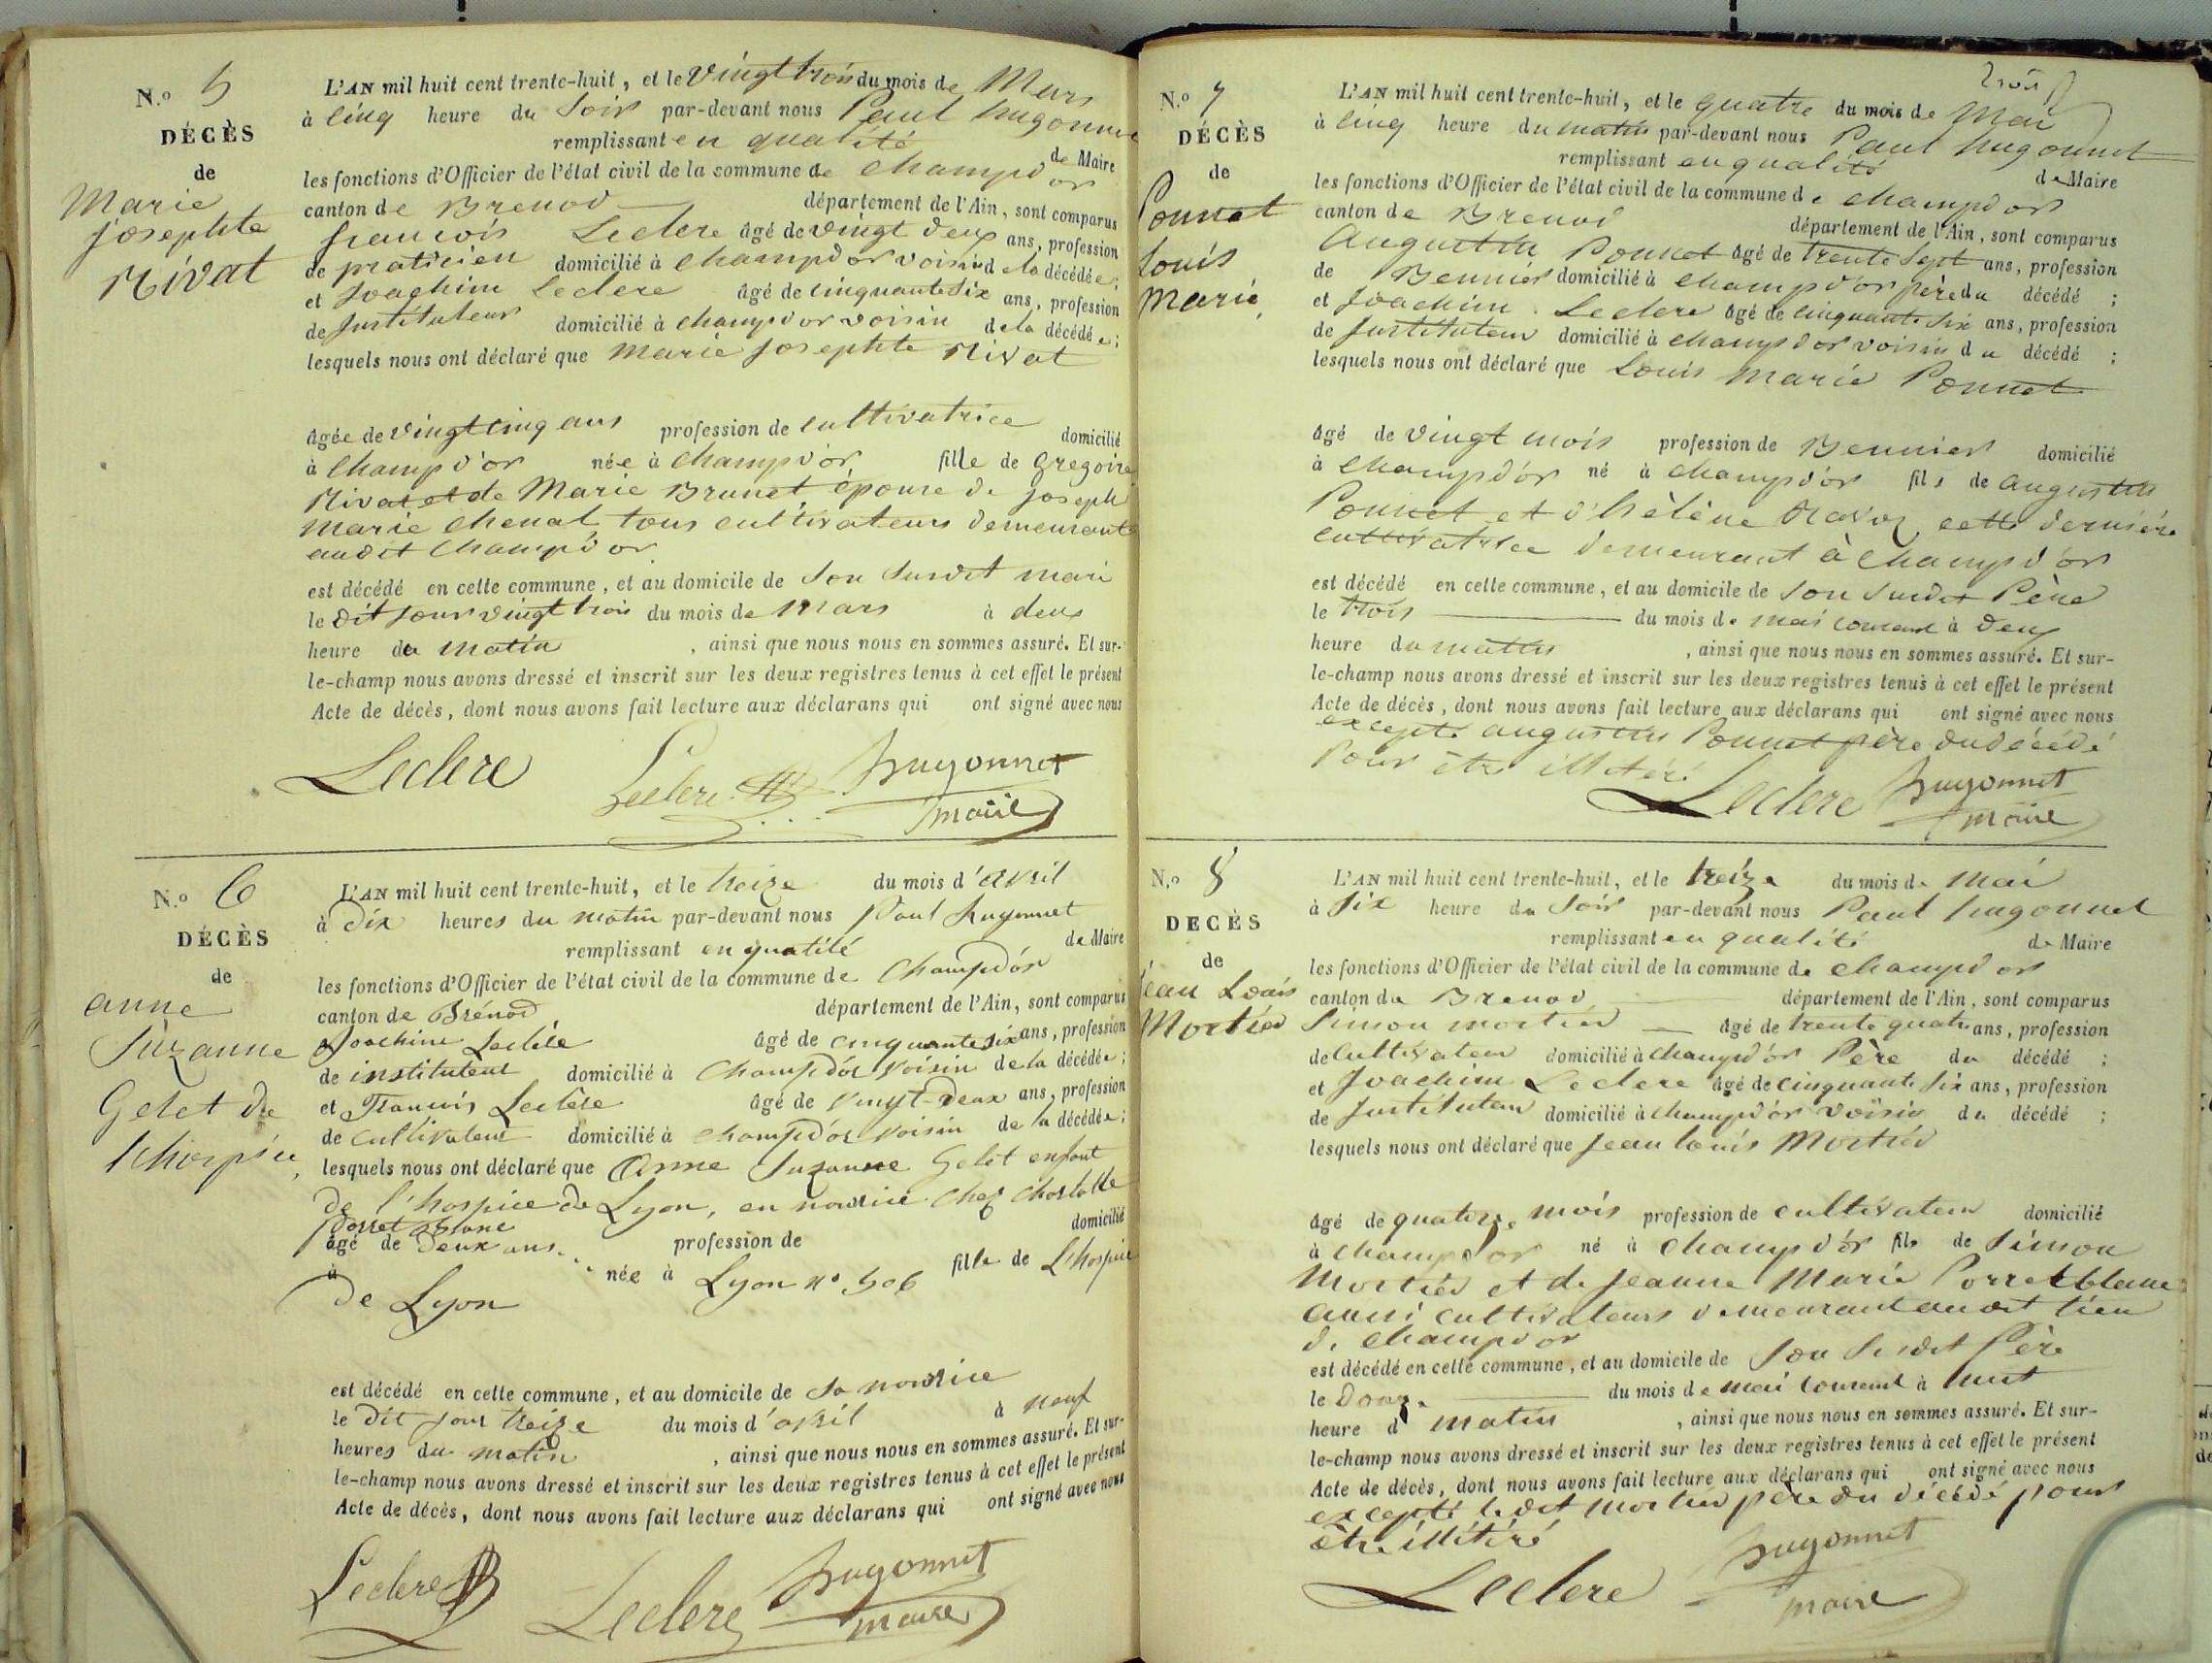 N.º 5
DÉCÈS
de
Marie
josephte
Rivat
L'AN mil huit cent trente-huit, et le vingt trois du mois de Mars
à cinq heure du soir par-devant nous Paul hugonnet
remplissant en qualité de Maire
les fonctions d'Officier de l'état civil de la commune de champd'or
canton de Brenod département de l'Ain, sont comparus
françois Leclere âgé de vingt deux ans, profession
de praticien domicilié à champd'or voisin de la décédée;
et Joachim Leclere âgé de cinquante six ans, profession
de Instituteur domicilié à champd'or voisin de la décédée;
lesquels nous ont déclaré que Marie josephte Rivat
âgée de vingt cinq ans profession de cultivatrice domicilié
à champd'or née à champd'or fille de Gregoire
Rivat et de Marie Brunet épouse de joseph
marie chenat tous cultivateurs demeurants
audit champd'or
est décédé en cette commune, et au domicile de son susdit mari
le dit jour vingt trois du mois de Mars à deux
heure du matin, ainsi que nous nous en sommes assuré. Et sur-
le-champ nous avons dressé et inscrit sur les deux registres tenus à cet effet le présent
Acte de décès, dont nous avons fait lecture aux déclarans qui ont signé avec nous
Leclere Leclere hugonnet
maire
N.º 6
DÉCÈS
de
anne
suzanne
Gelet de
l'hospice
L'AN mil huit cent trente-huit, et le treize du mois d'avril
à dix heures du matin par-devant nous Paul hugonnet
remplissant en qualité de Maire
les fonctions d'Officier de l'état civil de la commune de Champd'or
canton de Brénod département de l'Ain, sont comparus
Joachim Leclere âgé de cinquante six ans, profession
de instituteur domicilié à Champd'or voisin de la décédée;
et François Leclere âgé de vingt-deux ans, profession
de cultivateur domicilié à champd'or voisin de la décédée;
lesquels nous ont déclaré que Anne Suzanne Gelet enfant
de l'hospice de Lyon, en nourrice chez Charlotte
Porret blanc
âgé de deux ans profession de domicilié
à née à Lyon nº 506 fille de L'hospice
de Lyon
est décédé en cette commune, et au domicile de sa nourrice
le dit jour treize du mois d'avril à neuf
heures du matin, ainsi que nous nous en sommes assuré. Et sur-
le-champ nous avons dressé et inscrit sur les deux registres tenus à cet effet le présent
Acte de décès, dont nous avons fait lecture aux déclarans qui ont signé avec nous
Leclere Leclere hugonnet
maire
N.º 7
DÉCÈS
de
Ponnet
Louis
marie,
trois
L'AN mil huit cent trente-huit, et le quatre du mois de Mai
à cinq heure du matin par-devant nous Paul hugonnet
remplissant en qualité de Maire
les fonctions d'Officier de l'état civil de la commune de champd'or
canton de Brenod département de l'Ain, sont comparus
Augustin Ponnet âgé de trente sept ans, profession
de Bennier domicilié à champd'or père du décédé;
et Joachim Leclere âgé de cinquante six ans, profession
de Instituteur domicilié à champd'or voisin du décédé;
lesquels nous ont déclaré que Louis Marie Ponnet
âgé de vingt mois profession de Bennier domicilié
à champd'or né à champd'or fils de augustin
Ponnet et d'hélène Ravoz cette dernière
cultivatrice demeurant à champd'or
est décédé en cette commune, et au domicile de son susdit Père
le trois du mois de mai courant à deux
heure du matin, ainsi que nous nous en sommes assuré. Et sur-
le-champ nous avons dressé et inscrit sur les deux registres tenus à cet effet le présent
Acte de décès, dont nous avons fait lecture aux déclarans qui ont signé avec nous
excepté augustin Ponnet père du décédé
pour être illitéré
Leclere hugonnet
maire
N.º 8
DECÈS
de
jean Louis
Mortier
L'AN mil huit cent trente-huit, et le treize du mois de Mai
à six heure du soir par-devant nous Paul hugonnet
remplissant en qualité de Maire
les fonctions d'Officier de l'état civil de la commune de champd'or
canton de Brenod département de l'Ain, sont comparus
Simon mortier âgé de trente quatre ans, profession
de cultivateur domicilié à champd'or Père du décédé;
et Joachim Leclere âgé de cinquante six ans, profession
de Instituteur domicilié à champd'or voisin du décédé;
lesquels nous ont déclaré que jean louis Mortier
âgé de quatorze mois profession de cultivateur domicilié
à champd'or né à champd'or fils de Simon
Mortier et de jeanne Marie Porretblanc
aussi cultivateurs demeurant audit lieu
de champd'or
est décédé en cette commune, et au domicile de son susdit Père
le douze du mois de mai courant à huit
heure d matin, ainsi que nous nous en sommes assuré. Et sur-
le-champ nous avons dressé et inscrit sur les deux registres tenus à cet effet le présent
Acte de décès, dont nous avons fait lecture aux déclarans qui ont signé avec nous
excepté ledit mortier père du décédé pour
être illitéré
Leclere hugonnet
maire